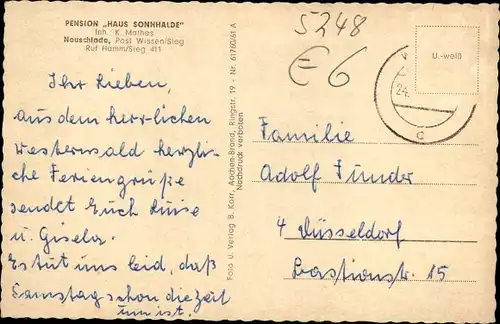 PENSION „HAUS SONNHALDE"
Inh.: K. Mathes
Neuschlade, Post Wissen/Sieg
Ruf Hamm/Sieg 411
Ihr Lieben,
aus dem herrlichen
Westerwald herzli-
che Feriengrüße
sendet Euch Luise
u. Gisela.
Es tut uns leid, daß
Samstag schon die Zeit
um ist.
Foto u. Verlag B. Korr, Aachen-Brand, Ringstr. 19 - Nr. 61760/61 A
Nachdruck verboten
5248
€6
U.-weiß
24.
c
Familie
Adolf Funder
4 Düsseldorf
Bastionstr. 15